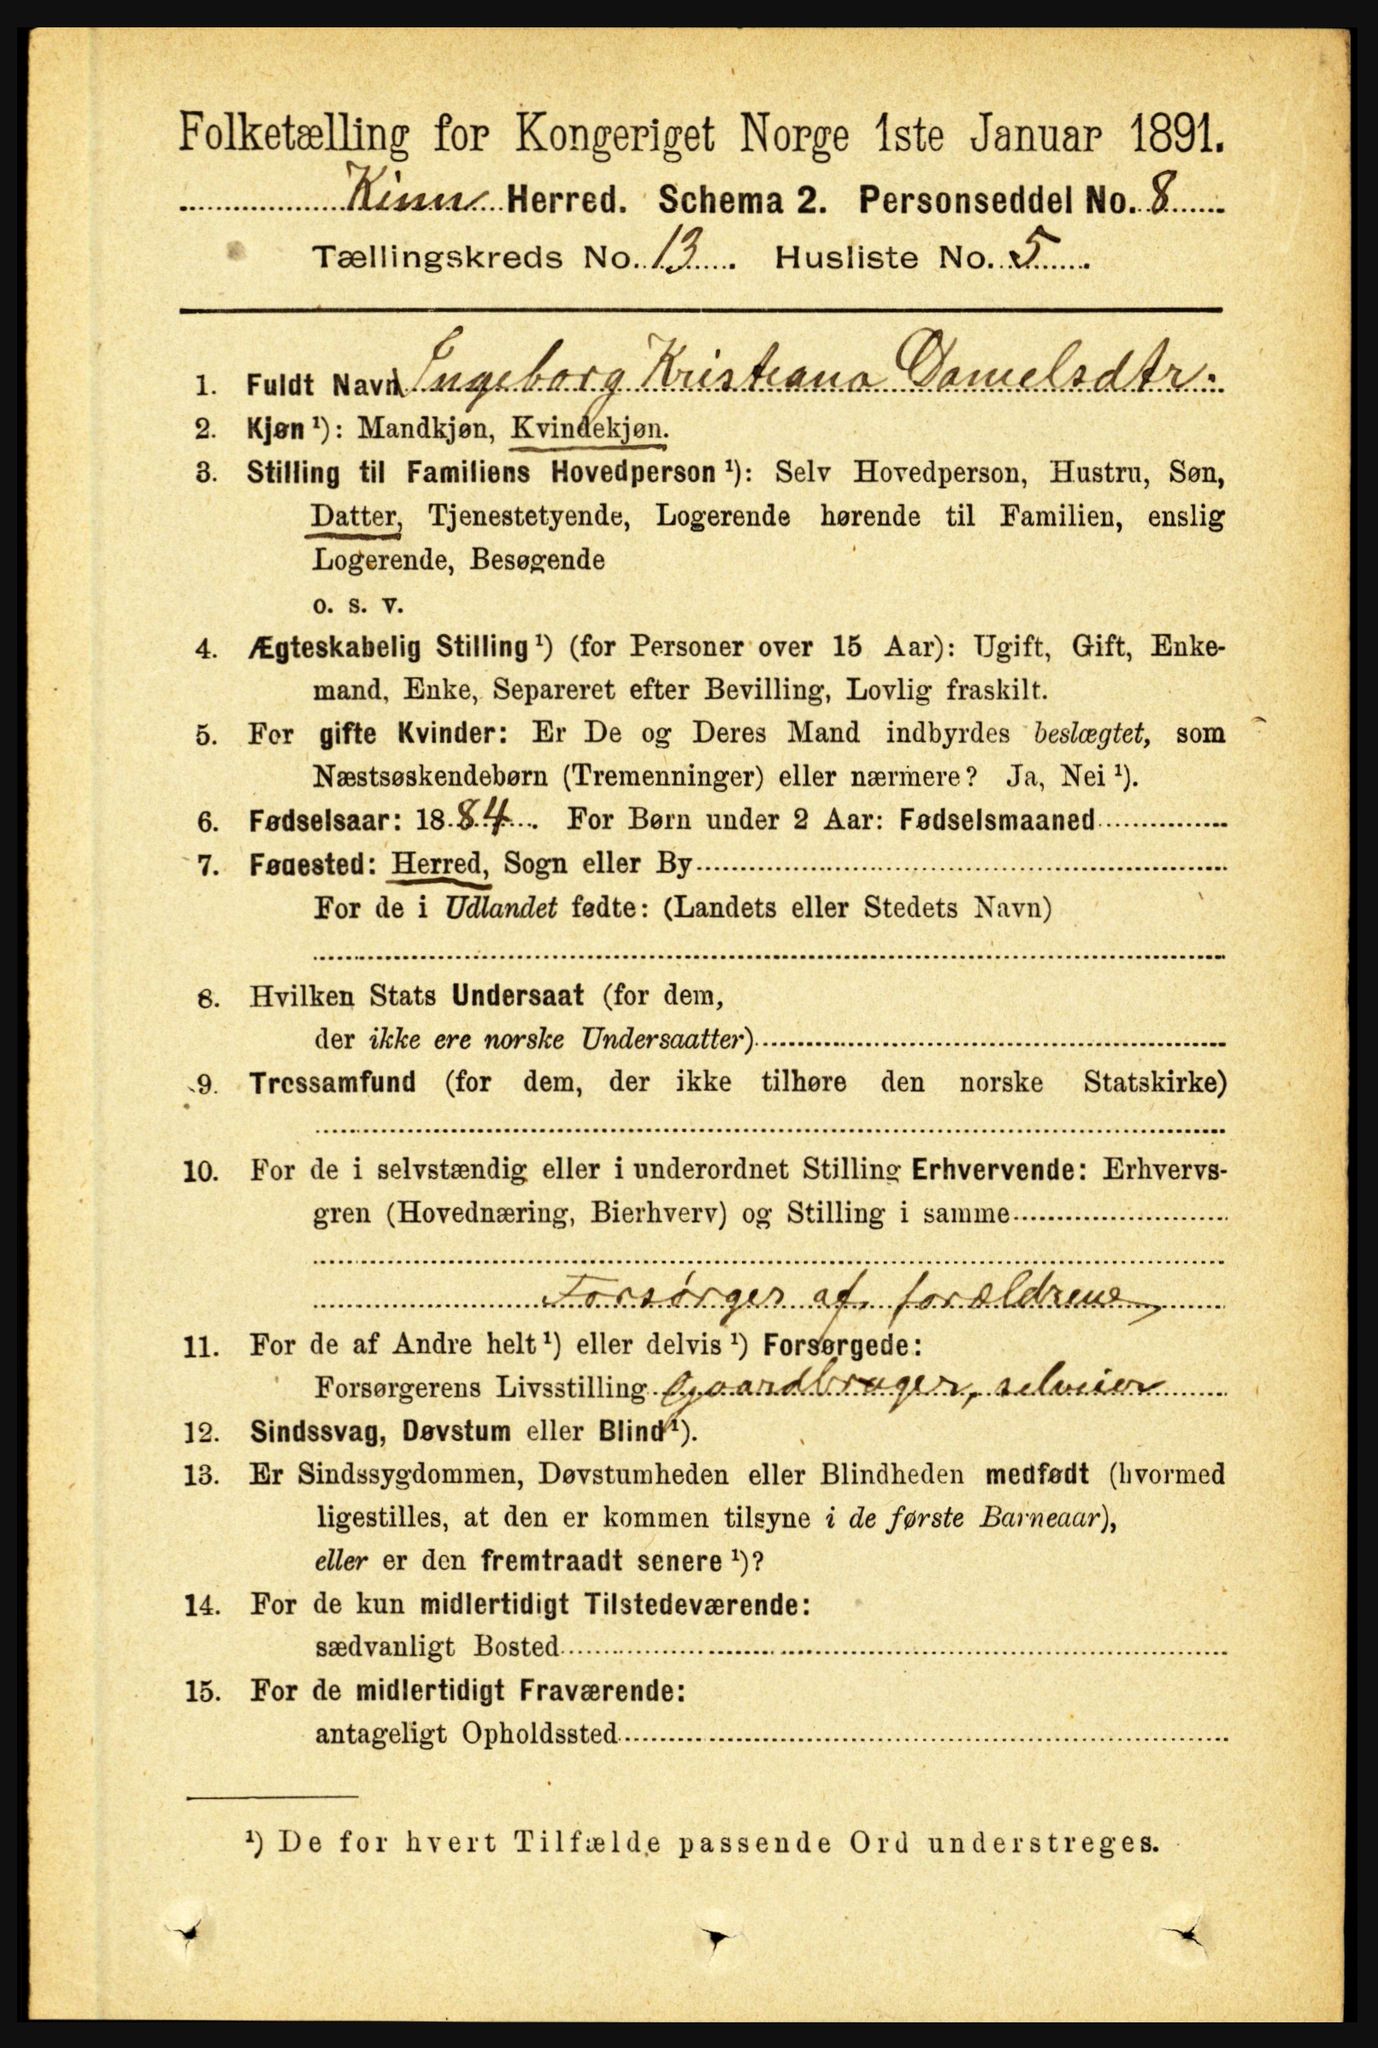 Folketælling for Kongeriget Norge 1ste Januar 1891.
Kinn Herred. Schema 2. Personseddel No. 8
Tællingskreds No. 13. Husliste No. 5.
1. Fuldt Navn Ingeborg Kristiana Danielsdtr.
2. Kjøn ¹): Mandkjøn, Kvindekjøn.
3. Stilling til Familiens Hovedperson ¹): Selv Hovedperson, Hustru, Søn,
Datter, Tjenestetyende, Logerende hørende til Familien, enslig
Logerende, Besøgende
o. s. v.
4. Ægteskabelig Stilling ¹) (for Personer over 15 Aar): Ugift, Gift, Enke-
mand, Enke, Separeret efter Bevilling, Lovlig fraskilt.
5. For gifte Kvinder: Er De og Deres Mand indbyrdes beslægtet, som
Næstsøskendebørn (Tremenninger) eller nærmere? Ja, Nei ¹).
6. Fødselsaar: 1884. For Børn under 2 Aar: Fødselsmaaned
7. Fødested: Herred, Sogn eller By
For de i Udlandet fødte: (Landets eller Stedets Navn)
8. Hvilken Stats Undersaat (for dem,
der ikke ere norske Undersaatter)
9. Trossamfund (for dem, der ikke tilhøre den norske Statskirke)
10. For de i selvstændig eller i underordnet Stilling Erhvervende: Erhvervs-
gren (Hovednæring, Bierhverv) og Stilling i samme
Forsørges af forældrene,
11. For de af Andre helt ¹) eller delvis ¹) Forsørgede:
Forsørgerens Livsstilling gaardbruger, selveier
12. Sindssvag, Døvstum eller Blind ¹).
13. Er Sindssygdommen, Døvstumheden eller Blindheden medfødt (hvormed
ligestilles, at den er kommen tilsyne i de første Barneaar),
eller er den fremtraadt senere ¹)?
14. For de kun midlertidigt Tilstedeværende:
sædvanligt Bosted
15. For de midlertidigt Fraværende:
antageligt Opholdssted
¹) De for hvert Tilfælde passende Ord understreges.